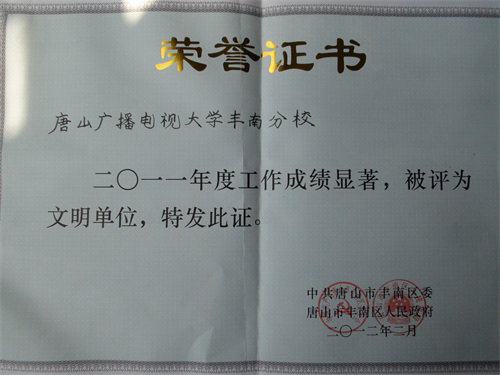 荣誉证书
唐山广播电视大学丰南分校
二〇一一年度工作成绩显著，被评为
文明单位，特发此证。
中共唐山市丰南区委
唐山市丰南区人民政府
二〇一二年二月